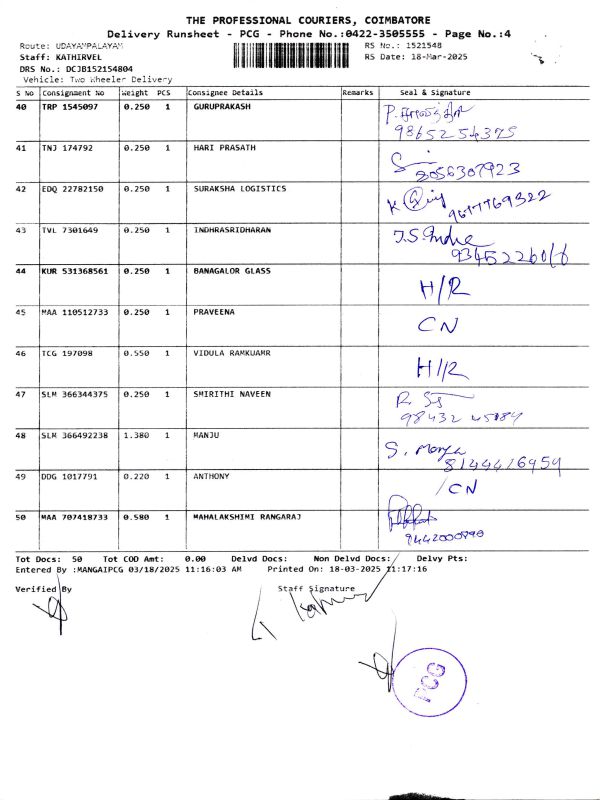 THE PROFESSIONAL COURIERS, COIMBATORE
Delivery Runsheet - PCG - Phone No.:0422-3505555 - Page No.:4
Route: UDAYAMPALAYAM RS No.: 1521548
Staff: KATHIRVEL RS Date: 18-Mar-2025
DRS No.: DCJB152154804
Vehicle: Two Wheeler Delivery
S No Consignment No Weight PCS Consignee Details Remarks Seal & Signature
40 TRP 1545097 0.250 1 GURUPRAKASH
9865254375
41 TNJ 174792 0.250 1 HARI PRASATH
8056307923
42 EDQ 22782150 0.250 1 SURAKSHA LOGISTICS
9677769322
43 TVL 7301649 0.250 1 INDHRASRIDHARAN J.S. Indra
44 KUR 531368561 0.250 1 BANAGALOR GLASS H/R
45 MAA 110512733 0.250 1 PRAVEENA CN
46 TCG 197098 0.550 1 VIDULA RAMKUAMR H/R
47 SLM 366344375 0.250 1 SMIRITHI NAVEEN
48 SLM 366492238 1.380 1 MANJU S. Manju
49 DDG 1017791 0.220 1 ANTHONY CN
50 MAA 707418733 0.580 1 MAHALAKSHIMI RANGARAJ
Tot Docs: 50 Tot COD Amt: 0.00 Delvd Docs: Non Delvd Docs: Delvy Pts:
Entered By :MANGAIPCG 03/18/2025 11:16:03 AM Printed On: 18-03-2025 11:17:16
Verified By Staff Signature
PCG